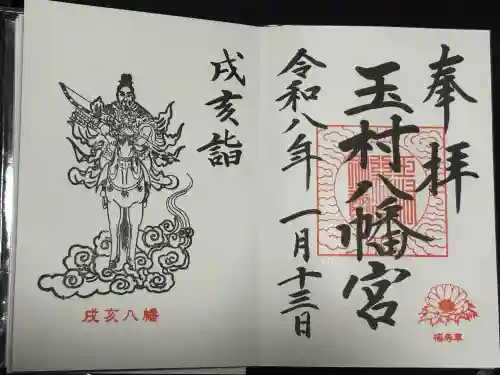 奉拝
玉村八幡宮
令和八年 一月十三日
福寿草
戌亥詣
戌亥八幡